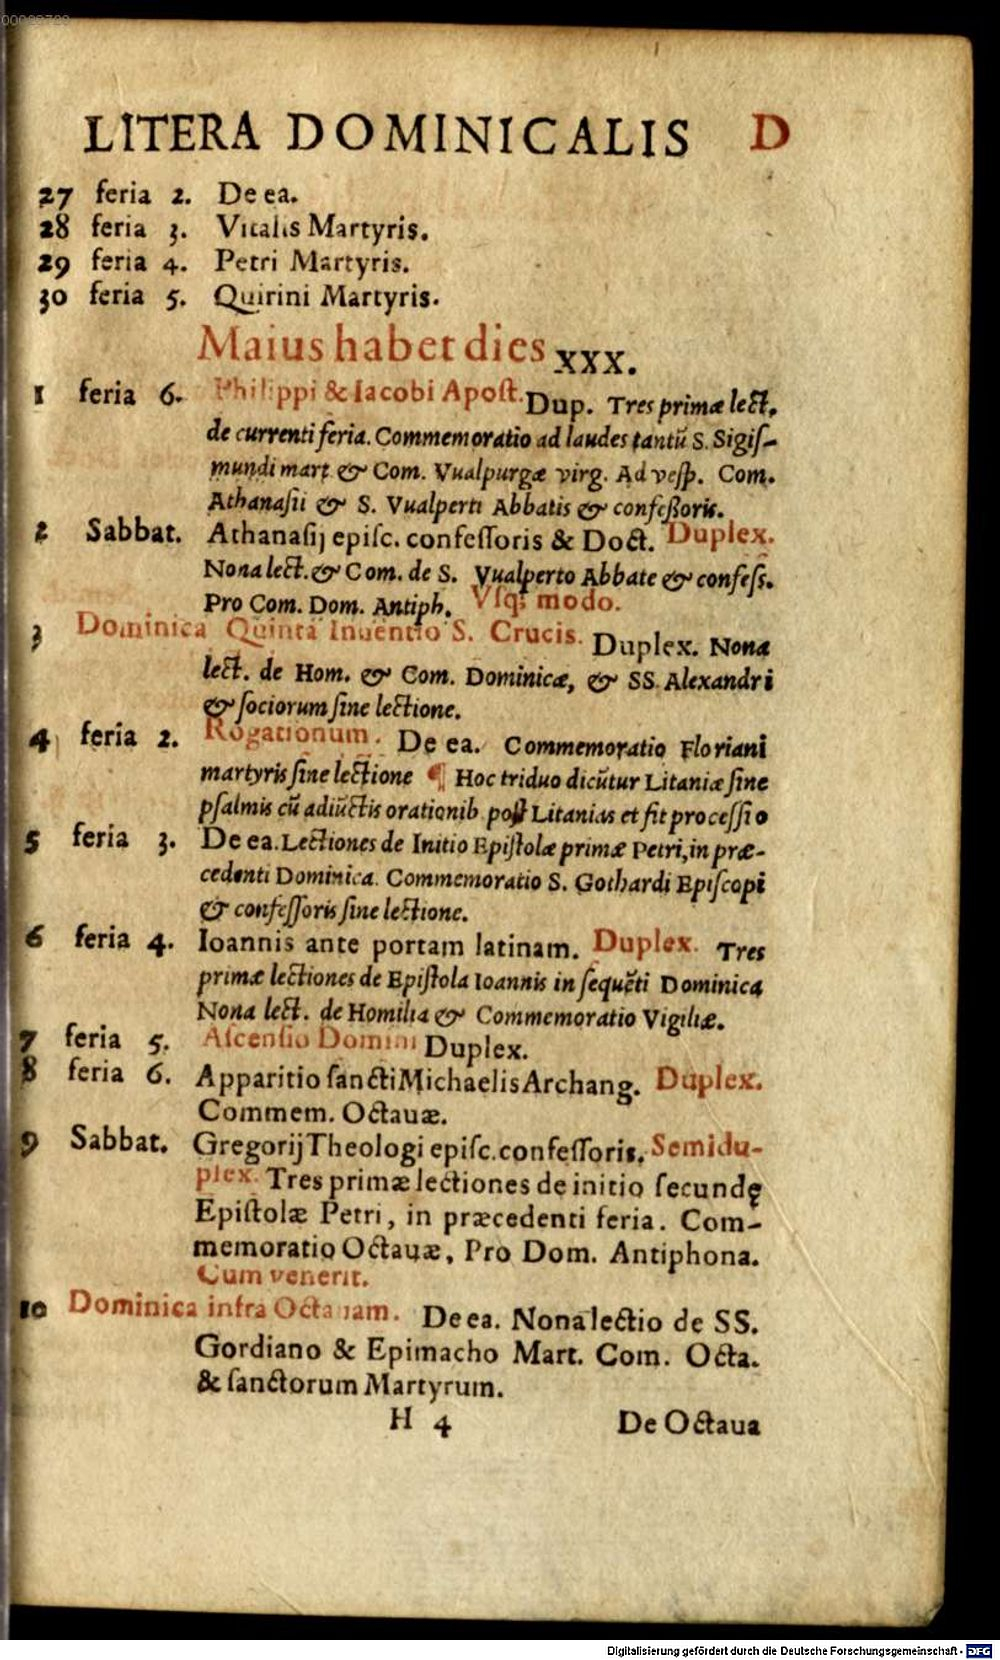 00023720
LITERA DOMINICALIS D
27 feria 2. De ea.
28 feria 3. Vitalis Martyris.
29 feria 4. Petri Martyris.
30 feria 5. Quirini Martyris.
Maius habet dies XXX.
1 feria 6. Philippi & Iacobi Apost. Dup. Tres primæ lect.
de currenti feria. Commemoratio ad laudes tantũ S. Sigiſ-
mundi mart & Com. Vualpurgæ virg. Ad veſp. Com.
Athanaſii & S. Vualperti Abbatis & confeßoris.
2 Sabbat. Athanaſij epiſc. confeſſoris & Doct. Duplex.
Nona lect. & Com. de S. Vualperto Abbate & confeſs.
Pro Com. Dom. Antiph. Vſq; modo.
3 Dominica Quinta Inuentio S. Crucis. Duplex. Nona
lect. de Hom. & Com. Dominicæ, & SS. Alexandri
& ſociorum ſine lectione.
4 feria 2. Rogationum. De ea. Commemoratio Floriani
martyris ſine lectione ¶ Hoc triduo dicũtur Litaniæ ſine
pſalmis cũ adiũctis orationib. poſt Litanias et fit proceſſio
5 feria 3. De ea. Lectiones de Initio Epiſtolæ primæ Petri, in præ-
cedenti Dominica. Commemoratio S. Gothardi Epiſcopi
& confeſſoris ſine lectione.
6 feria 4. Ioannis ante portam latinam. Duplex. Tres
primæ lectiones de Epiſtola Ioannis in ſequẽti Dominica
Nona lect. de Homilia & Commemoratio Vigiliæ.
7 feria 5. Aſcenſio Domini Duplex.
8 feria 6. Apparitio ſancti Michaelis Archang. Duplex.
Commem. Octauæ.
9 Sabbat. Gregorij Theologi epiſc. confeſſoris. Semidu-
plex. Tres primæ lectiones de initio ſecundę
Epiſtolæ Petri, in præcedenti feria. Com-
memoratio Octauæ, Pro Dom. Antiphona.
Cum venerit.
10 Dominica infra Octauam. De ea. Nona lectio de SS.
Gordiano & Epimacho Mart. Com. Octa.
& ſanctorum Martyrum.
H 4 De Octaua
Digitalisierung gefördert durch die Deutsche Forschungsgemeinschaft - DFG